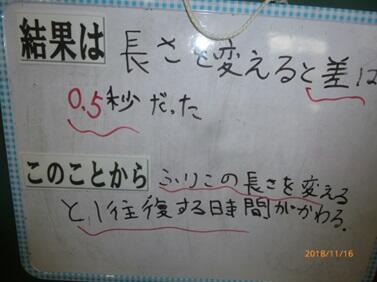 結果は 長さを変えると差は
0.5秒だった
このことから ふりこの長さを変える
と、1往復する時間がかわる。
2018/11/16